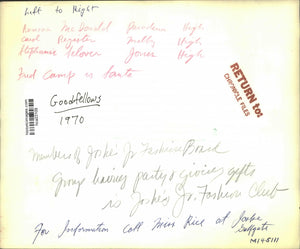 Left to Right
MacDonald High
Carol Register High
Stephanie High
Fred Camp is Santa
RETURN to:
CHRONICLE FILES
Goodfellows
1970
Members of Joske's Jr Fashion Board
Group having party & giving gifts
is Joske's Jr. Fashion Club
For Information Call Miss Rice at Joske
Gulfgate
MI 4-5111